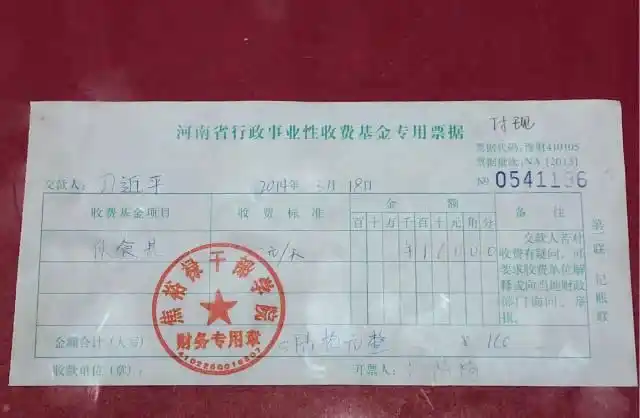 河南省行政事业性收费基金专用票据
付现
票据代码:豫财410105
票据批次:NA [2013]
交款人:习近平 2014年3月18日 № 0541196
收费基金项目 收费标准 金额 备注
百十万千百十元角分
伙食费 元/天 ¥16000
交款人若对收费有疑问,可要求收费单位解释或向当地财政部门询问、举报。
第一联 记账联
焦裕禄干部学院
财务专用章
4102250016807
金额合计(大写) 陆拾元整 ¥ 160
收款单位(章): 开票人: